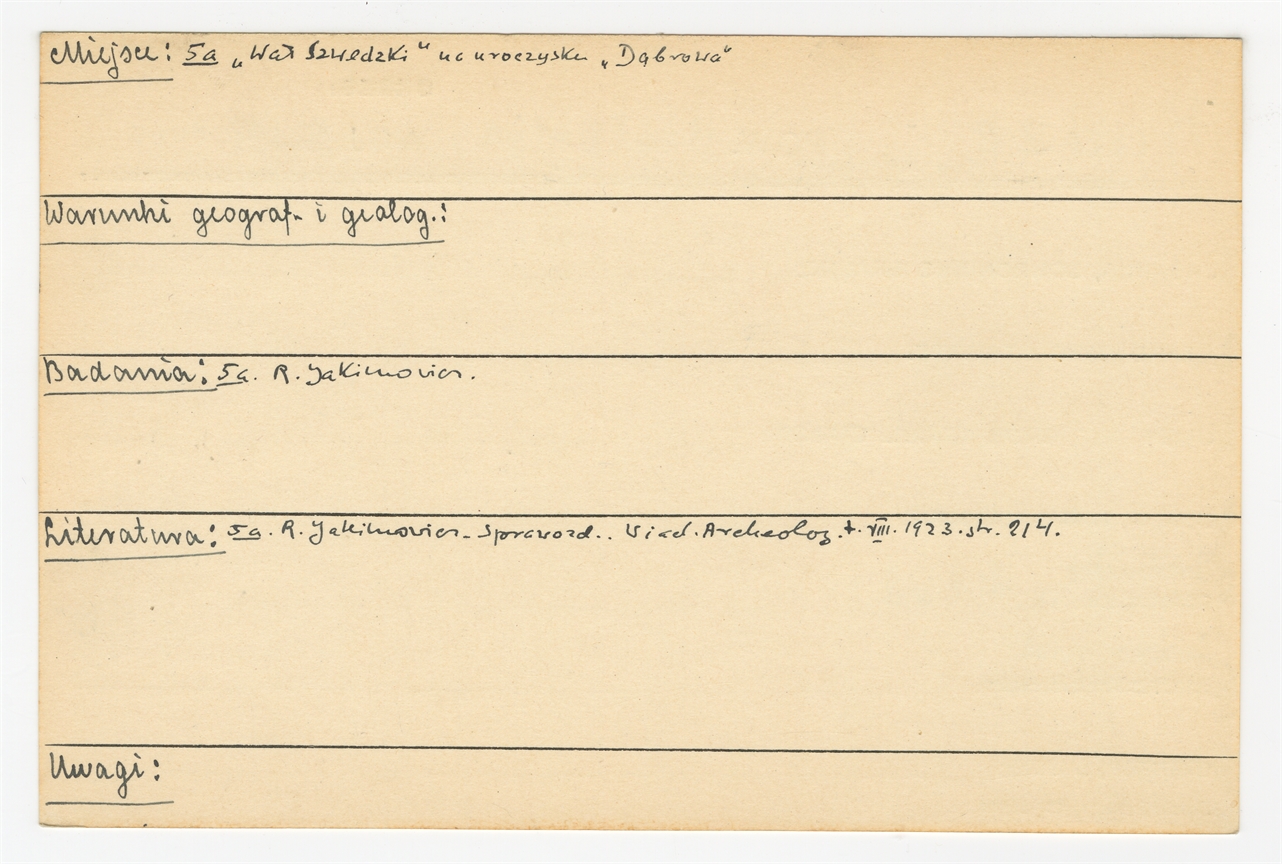 Miejsce: 5a „Wał Szwedzki" na uroczysku „Dąbrowa"
Warunki geograf. i geolog.:
Badania: 5a. R. Jakimowicz.
Literatura: 5a. R. Jakimowicz - Sprawozd.. Wiad. Archeolog. t. VIII. 1923. str. 214.
Uwagi: